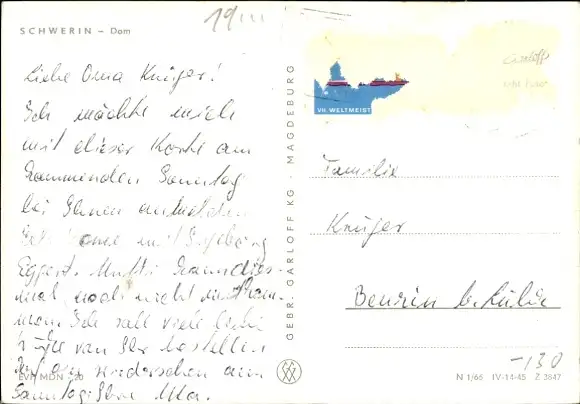 SCHWERIN – Dom
19
Liebe Oma Krüger!
Ich möchte mich
mit dieser Karte am
kommenden Sonntag
bei Ihnen anmelden
Ich komme mit
Eggert. Mutti kann dies-
mal noch nicht
Ich soll viele liebe
Grüße von Ihr bestellen
Auf wiedersehen am
Sonntag Ihre
EVP MDN -,20
GEBR. GARLOFF KG · MAGDEBURG
VII. WELTMEIST
Familie
Krüger
Bentzin b. Lübz
-130
N 1/66 IV-14-45 Z 3847